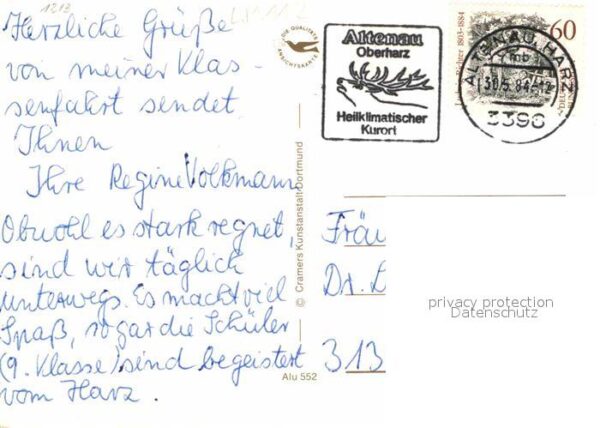 1213
Herzliche Grüße
von meiner Klas-
senfahrt sendet
Ihnen
Ihre Regine Volkmann
Obwohl es stark regnet,
sind wir täglich
unterwegs. Es macht viel
Spaß, sogar die Schüler
(9. Klasse) sind begeistert
vom Harz.
DIE QUALITÄTS
ANSICHTSKARTE
© Cramers Kunstanstalt Dortmund
Alu 552
Altenau
Oberharz
Heilklimatischer
Kurort
1803-1884
60
ALTENAU, HARZ
mb
30.5.84-12
3396
Fräu
Dr.
313
privacy protection
Datenschutz